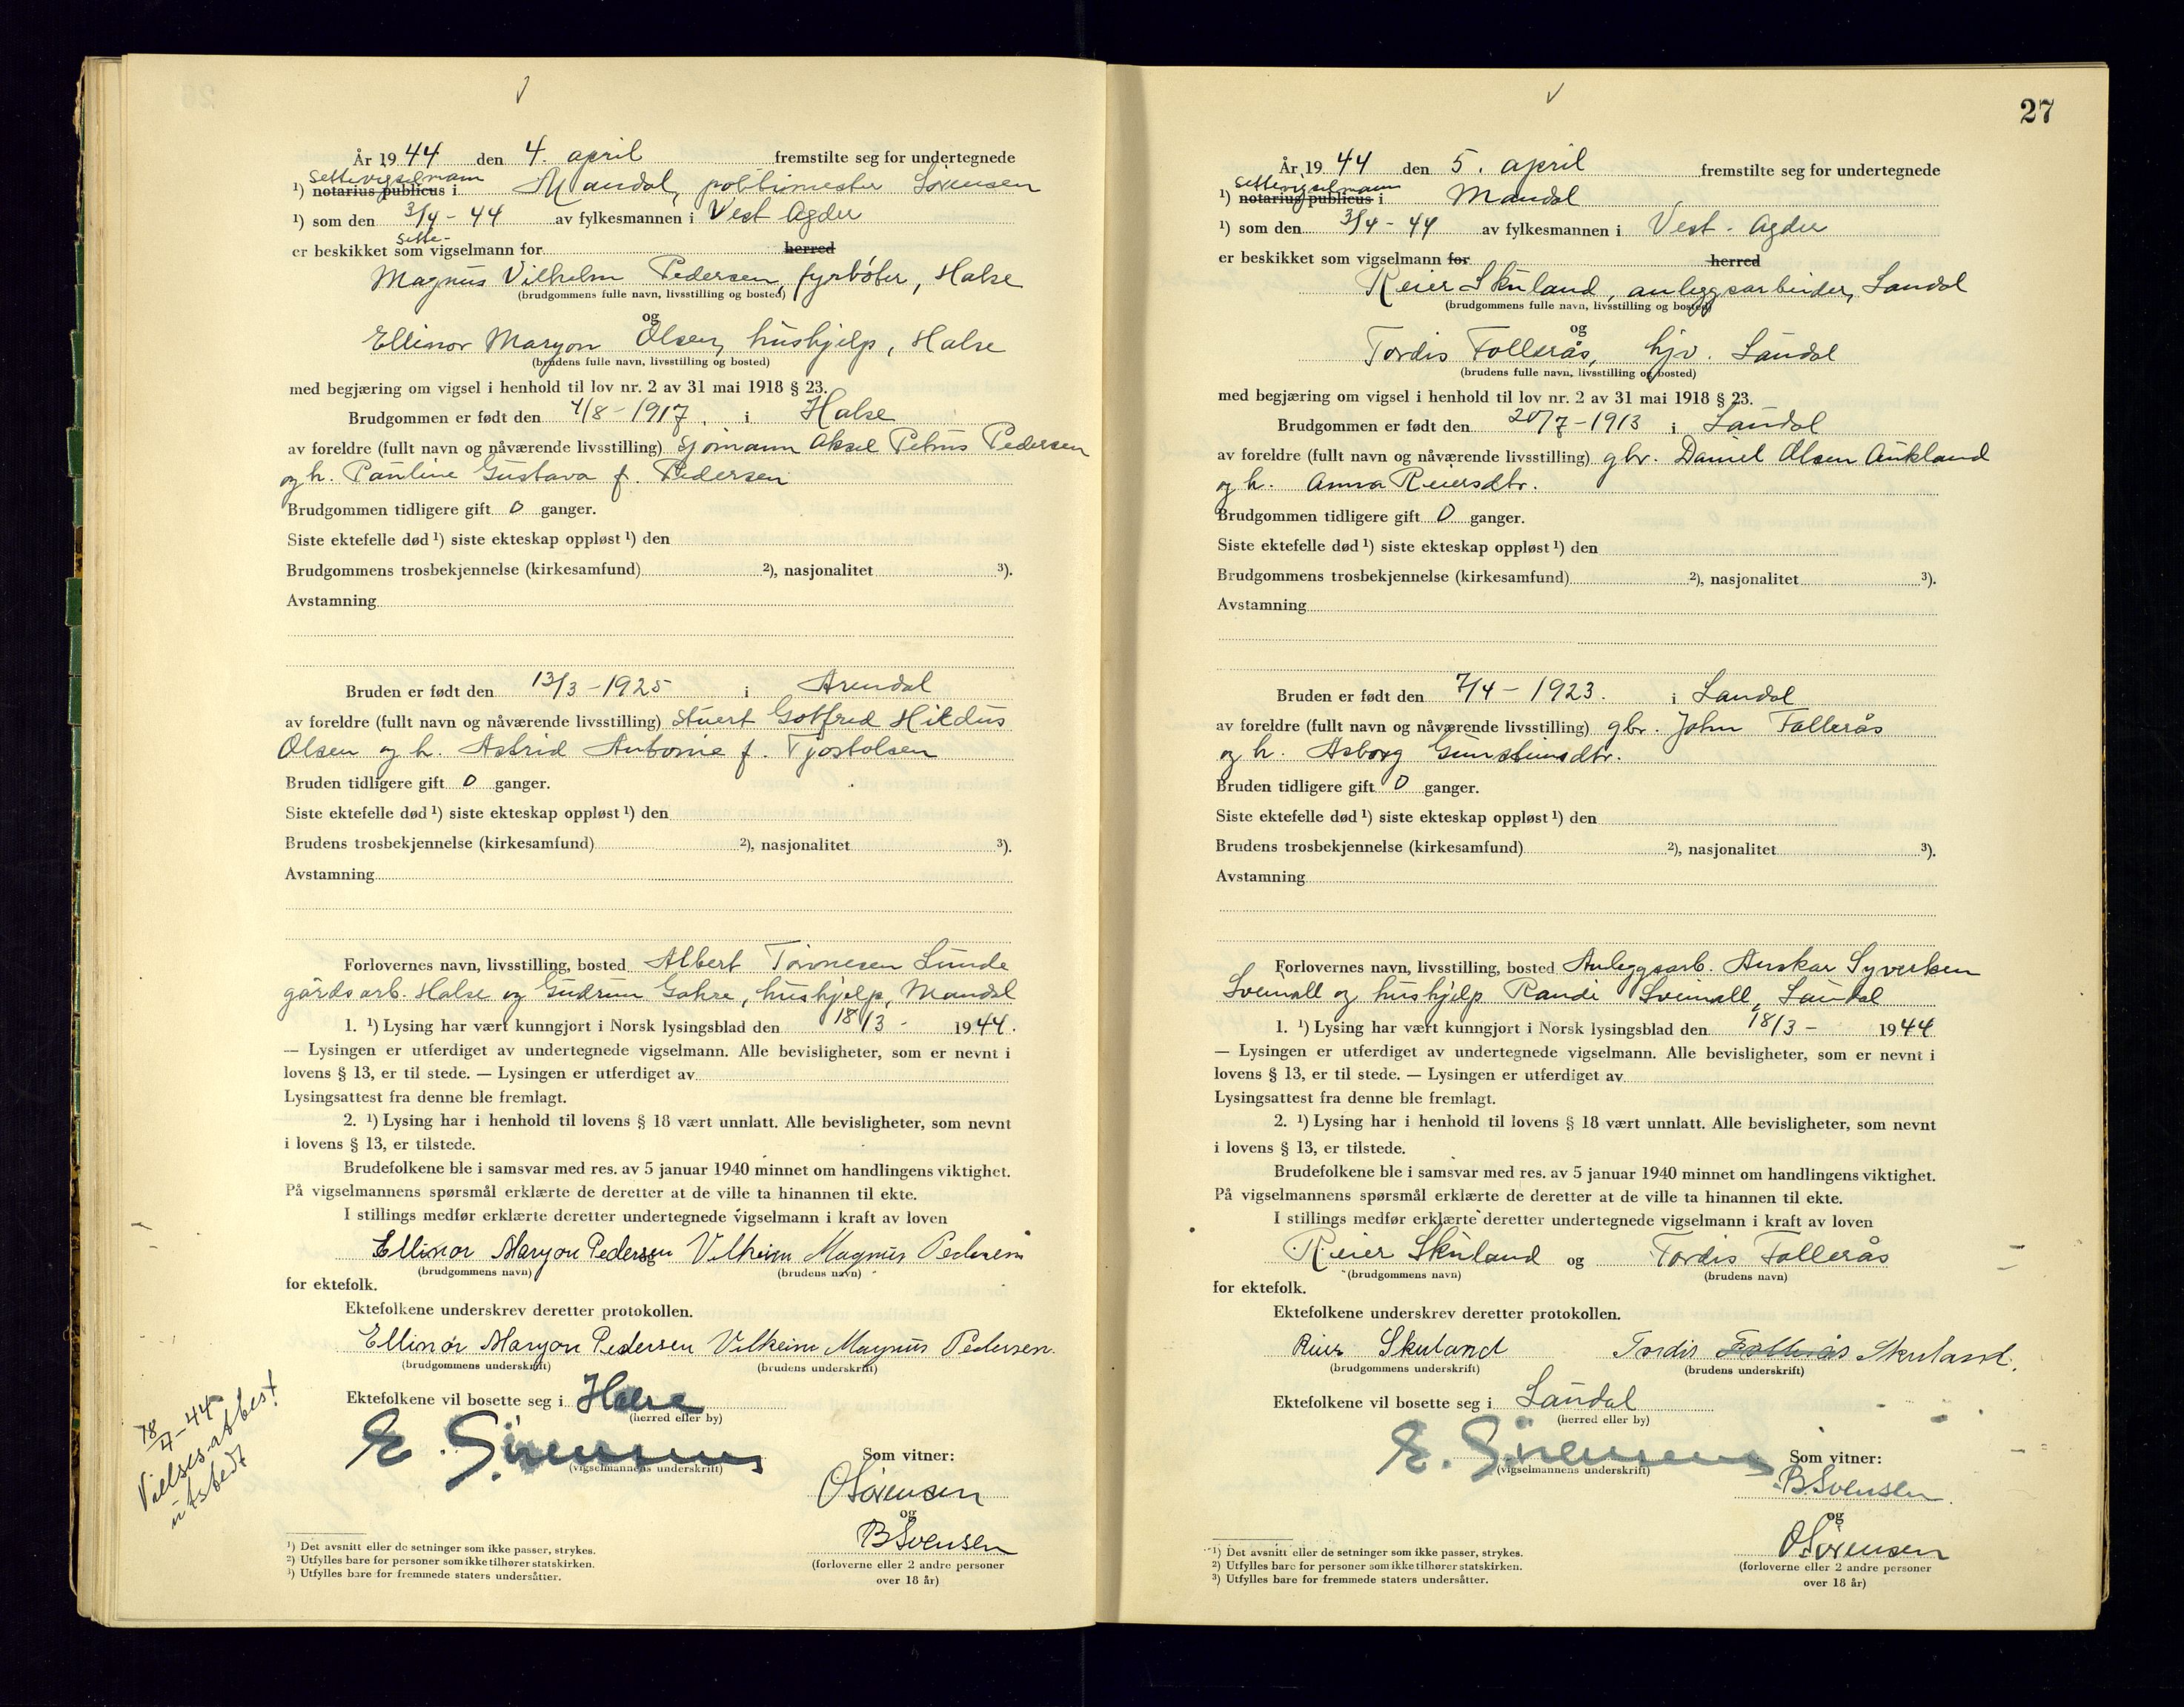 År 1944 den 4. april fremstilte seg for undertegnede
settevigselmann
¹) notarius publicus i Mandal, politimester Sørensen
¹) som den 3/4 - 44 av fylkesmannen i Vest Agder
sette-
er beskikket som vigselmann for herred
Magnus Vilhelm Pedersen, fyrbøter, Halse
(brudgommens fulle navn, livsstilling og bosted)
og
Ellinor Maryon Olsen, hushjelp, Halse
(brudens fulle navn, livsstilling og bosted)
med begjæring om vigsel i henhold til lov nr. 2 av 31 mai 1918 § 23.
Brudgommen er født den 4/8 - 1917. i Halse
av foreldre (fullt navn og nåværende livsstilling) sjømann Aksel Petrus Pedersen
og h. Pauline Gustava f. Pedersen
Brudgommen tidligere gift 0 ganger.
Siste ektefelle død ¹) siste ekteskap oppløst ¹) den
Brudgommens trosbekjennelse (kirkesamfund) ²), nasjonalitet ³).
Avstamning
Bruden er født den 13/3 - 1925 i Arendal
av foreldre (fullt navn og nåværende livsstilling) stuert Gotfred Hildus
Olsen og h. Astrid Antonie f. Tjostolsen
Bruden tidligere gift 0 ganger.
Siste ektefelle død ¹) siste ekteskap oppløst ¹) den
Brudens trosbekjennelse (kirkesamfund) ²), nasjonalitet ³).
Avstamning
Forlovernes navn, livsstilling, bosted Albert Tønnesen Lunde
gårdsarb. Halse og Gudrun Gahre, hushjelp, Mandal
1. ¹) Lysing har vært kunngjort i Norsk lysingsblad den 18/3 - 1944.
— Lysingen er utferdiget av undertegnede vigselmann. Alle bevisligheter, som er nevnt i
lovens § 13, er til stede. — Lysingen er utferdiget av
Lysingsattest fra denne ble fremlagt.
2. ¹) Lysing har i henhold til lovens § 18 vært unnlatt. Alle bevisligheter, som nevnt
i lovens § 13, er tilstede.
Brudefolkene ble i samsvar med res. av 5 januar 1940 minnet om handlingens viktighet.
På vigselmannens spørsmål erklærte de deretter at de ville ta hinannen til ekte.
I stillings medfør erklærte deretter undertegnede vigselmann i kraft av loven
Ellinor Maryon Pedersen Vilhelm Magnus Pedersen
(brudgommens navn) (brudens navn)
for ektefolk.
Ektefolkene underskrev deretter protokollen.
Ellinor Maryon Pedersen Vilhelm Magnus Pedersen.
(brudgommens underskrift) (brudens underskrift)
Ektefolkene vil bosette seg i Halse
(herred eller by)
E. Sørensen
(vigselmannens underskrift)
Som vitner:
O Sørensen
og
B Svensen
(forloverne eller 2 andre personer
over 18 år)
18/4 - 44
Vielsesattest
utstedt
¹) Det avsnitt eller de setninger som ikke passer, strykes.
²) Utfylles bare for personer som ikke tilhører statskirken.
³) Utfylles bare for fremmede staters undersåtter.
27
År 1944 den 5. april fremstilte seg for undertegnede
settevigselmann
¹) notarius publicus i Mandal
¹) som den 3/4 - 44 av fylkesmannen i Vest - Agder
er beskikket som vigselmann for herred
Reier Skuland, anleggsarbeider, Laudal
(brudgommens fulle navn, livsstilling og bosted)
og
Tordis Follerås, hjv. Laudal
(brudens fulle navn, livsstilling og bosted)
med begjæring om vigsel i henhold til lov nr. 2 av 31 mai 1918 § 23.
Brudgommen er født den 20/7 - 1913 i Laudal
av foreldre (fullt navn og nåværende livsstilling) gbr. Daniel Olsen Aukland
og h. Anna Reiersdtr.
Brudgommen tidligere gift 0 ganger.
Siste ektefelle død ¹) siste ekteskap oppløst ¹) den
Brudgommens trosbekjennelse (kirkesamfund) ²), nasjonalitet ³).
Avstamning
Bruden er født den 7/4 - 1923. i Laudal
av foreldre (fullt navn og nåværende livsstilling) gbr. John Follerås
og h. Asborg Gunsteinsdtr.
Bruden tidligere gift 0 ganger.
Siste ektefelle død ¹) siste ekteskap oppløst ¹) den
Brudens trosbekjennelse (kirkesamfund) ²), nasjonalitet ³).
Avstamning
Forlovernes navn, livsstilling, bosted Anleggsarb. Anskar Syvertsen
Sveinall og hushjelp Randi Sveinall, Laudal
1. ¹) Lysing har vært kunngjort i Norsk lysingsblad den 18/3 - 1944
— Lysingen er utferdiget av undertegnede vigselmann. Alle bevisligheter, som er nevnt i
lovens § 13, er til stede. — Lysingen er utferdiget av
Lysingsattest fra denne ble fremlagt.
2. ¹) Lysing har i henhold til lovens § 18 vært unnlatt. Alle bevisligheter, som nevnt
i lovens § 13, er tilstede.
Brudefolkene ble i samsvar med res. av 5 januar 1940 minnet om handlingens viktighet.
På vigselmannens spørsmål erklærte de deretter at de ville ta hinannen til ekte.
I stillings medfør erklærte deretter undertegnede vigselmann i kraft av loven
Reier Skuland og Tordis Follerås
(brudgommens navn) (brudens navn)
for ektefolk.
Ektefolkene underskrev deretter protokollen.
Reier Skuland Tordis Follerås Skuland.
(brudgommens underskrift) (brudens underskrift)
Ektefolkene vil bosette seg i Laudal
(herred eller by)
E. Sørensen
(vigselmannens underskrift)
Som vitner:
B. Svensen
og
O Sørensen
(forloverne eller 2 andre personer
over 18 år)
¹) Det avsnitt eller de setninger som ikke passer, strykes.
²) Utfylles bare for personer som ikke tilhører statskirken.
³) Utfylles bare for fremmede staters undersåtter.